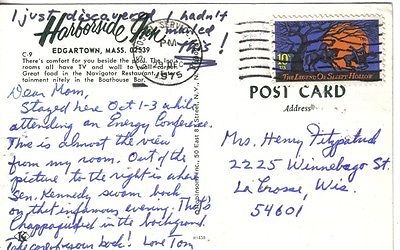 I just discovered I hadn't
mailed
this!
Harborside Inn
EDGARTOWN, MASS. 02539
C-9
There's comfort for you beside the pool. The
rooms all have TV and wall to wall
Great food in the Navigator Restaurant
tainment nightly in the Boathouse Bar.
SERVICE
PM
1975
10c
THE LEGEND OF SLEEPY HOLLOW
POST CARD
Address
Dear Mom,
Stayed here Oct 1-3 while
attending an Energy Conference.
This is almost the view
from my room. Out of the
picture to the right is where
Sen. Kennedy swam back
on that infamous evening. That's
Chappaquidick in the background.
back! Love Tom
Mrs. Henry Fitzpatrick
2225 Winnebago St.
La Crosse, Wis.
54601